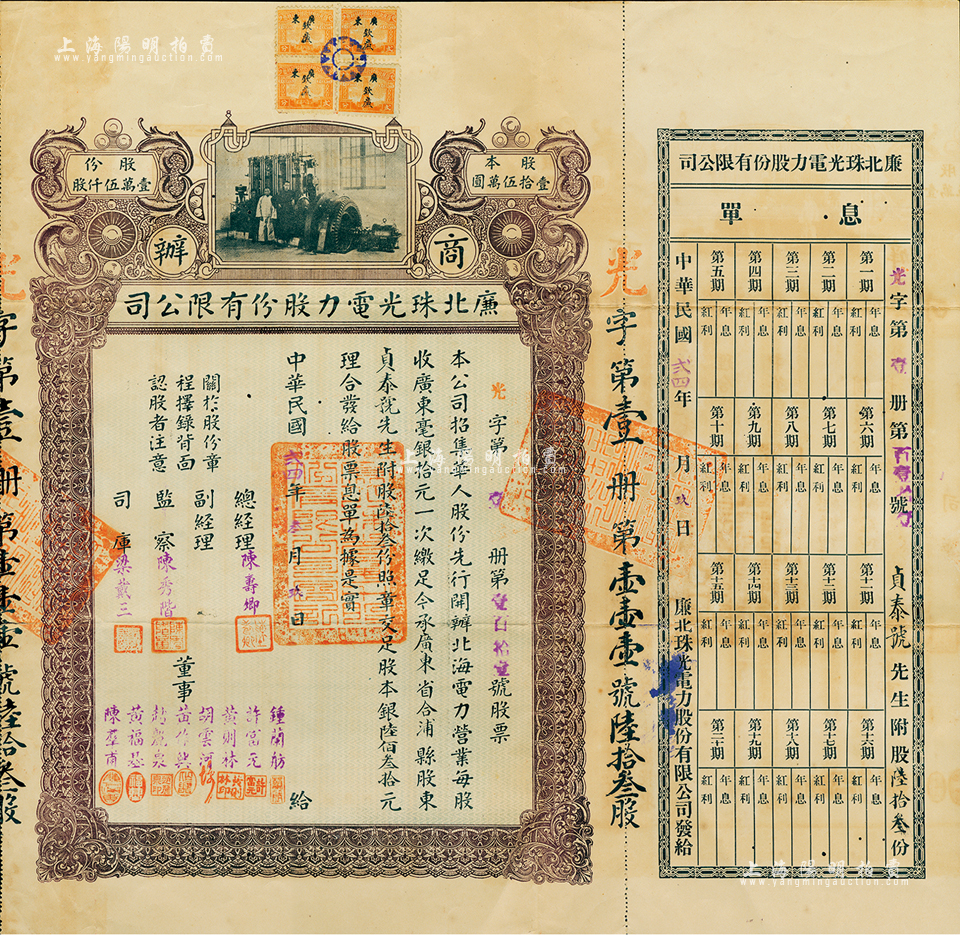 上海陽明拍賣
www.yangmingauction.com
廣東
欽廉
廣東
欽廉
廣東
欽廉
廣東
欽廉
股本
壹拾伍萬圓
股份
壹萬伍仟股
商辦
廉北珠光電力股份有限公司
光字第壹册第壹百拾壹號股票
本公司招集華人股份先行開辦北海電力營業每股
收廣東毫銀拾元一次繳足今承廣東省合浦縣股東
貞泰號先生附股陸拾叁份照章交足股本銀陸佰叁拾元
理合發給股票息單為據是實
中華民國弍四年 月 日 給
關於股份章
程擇錄背面
認股者注意
總經理 陳壽卿
副經理
監察 陳秀階
司庫 梁戴三
董事
鍾蘭舫
許富元
黃則林
胡雲河
黃作興
趙虎泉
黃福基
陳羣甫
光字第壹册第壹壹壹號陸拾叁股
字第壹册第壹壹壹號陸拾叁股
廉北珠光電力股份有限公司
息單
光字第壹册第百壹拾壹號 貞泰號先生附股陸拾叁份
第一期 年息 紅利
第二期 年息 紅利
第三期 年息 紅利
第四期 年息 紅利
第五期 年息 紅利
第六期 年息 紅利
第七期 年息 紅利
第八期 年息 紅利
第九期 年息 紅利
第十期 年息 紅利
第十一期 年息 紅利
第十二期 年息 紅利
第十三期 年息 紅利
第十四期 年息 紅利
第十五期 年息 紅利
第十六期 年息 紅利
第十七期 年息 紅利
第十八期 年息 紅利
第十九期 年息 紅利
第二十期 年息 紅利
中華民國弍四年 月 日 廉北珠光電力股份有限公司發給
上海陽明拍賣
www.yangmingauction.com
上海陽明拍賣
www.yangmingauction.com